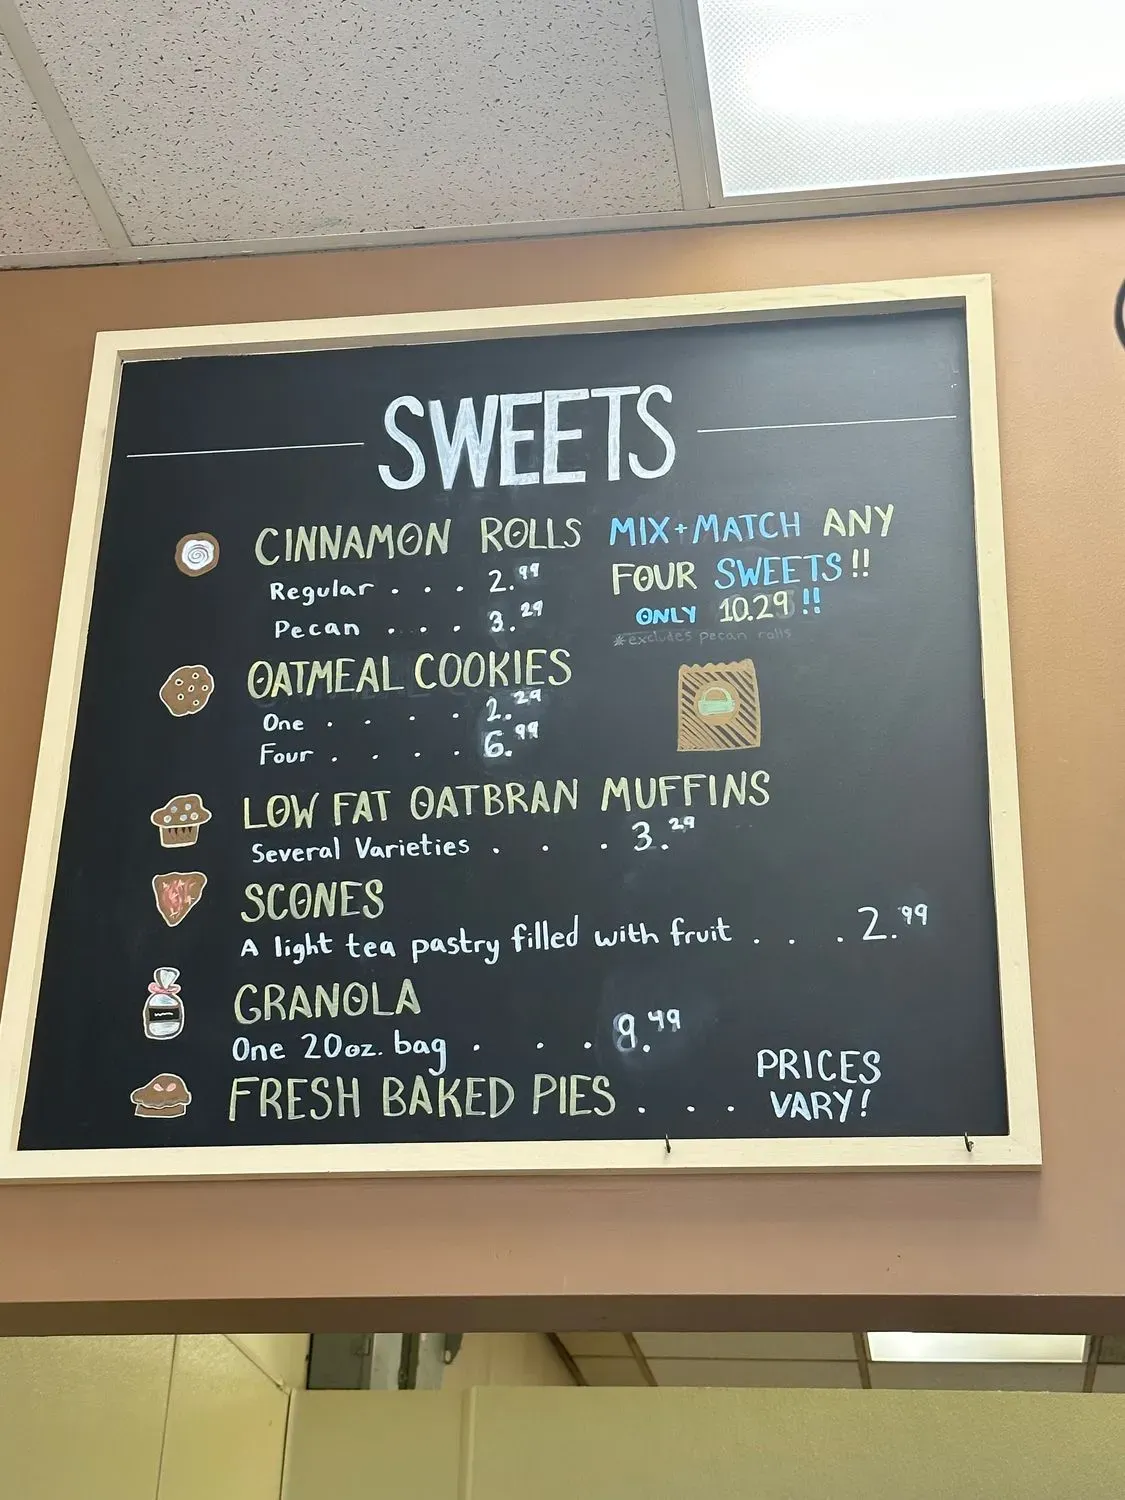 SWEETS
CINNAMON ROLLS
Regular . . . 2.99
Pecan . . . 3.29
MIX+MATCH ANY
FOUR SWEETS!!
ONLY 10.29!!
*excludes pecan rolls
OATMEAL COOKIES
One . . . . 2.29
Four . . . . 6.99
LOW FAT OATBRAN MUFFINS
Several Varieties . . . 3.29
SCONES
A light tea pastry filled with fruit . . . 2.99
GRANOLA
One 20oz. bag . . . 8.49
FRESH BAKED PIES . . . PRICES
VARY!